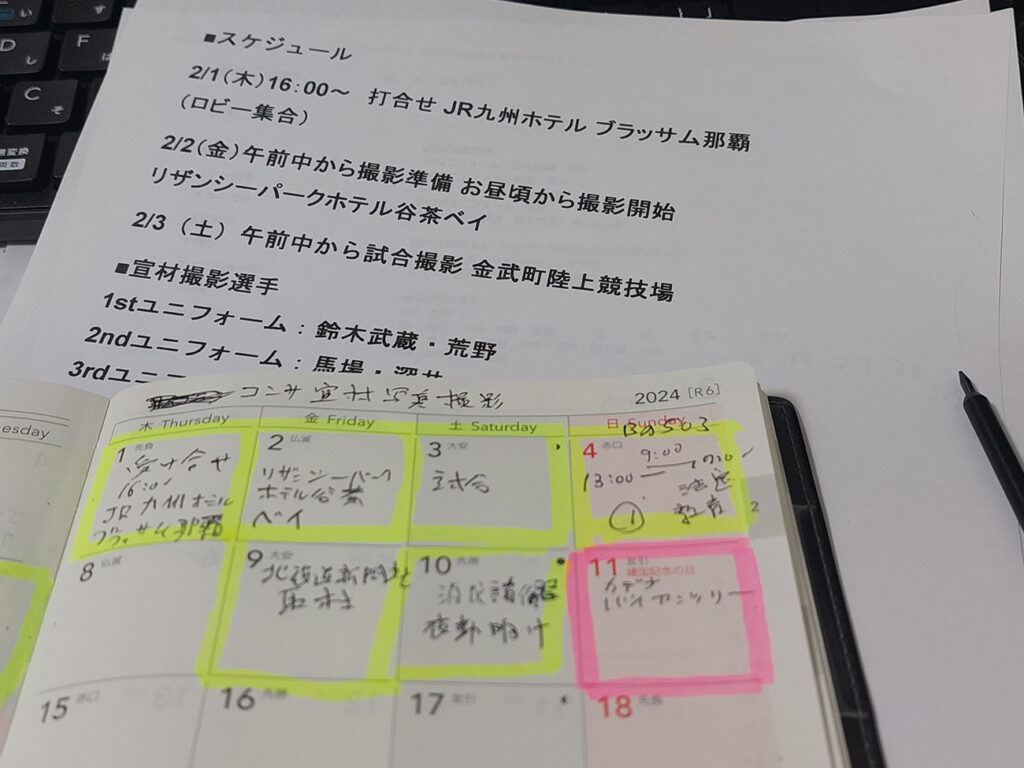 ■スケジュール
2/1(木)16:00～ 打合せ JR九州ホテル ブラッサム那覇
(ロビー集合)
2/2(金)午前中から撮影準備 お昼頃から撮影開始
リザンシーパークホテル谷茶ベイ
2/3 (土) 午前中から試合撮影 金武町陸上競技場
■宣材撮影選手
1stユニフォーム：鈴木武蔵・荒野
2ndユニフォーム：馬場・深井
3rdユニ
コンサ宣材写真撮影
2024 [R6]
esday
木 Thursday
金 Friday
土 Saturday
日 Sunday
1 先負
打合せ
16:00
JR九州ホテル
ブラッサム那覇
2 仏滅
リザンシーパーク
ホテル谷茶
ベイ
3 大安
試合
4 赤口
9:00
13:00
①
8 仏滅
9 大安
北海道新聞社
取材
10 先勝
夜勤明け
11 友引
建国記念の日
カデナ
15 赤口
16 先勝
17 友引
18 先負
D
し
F
は
C
そ
変換
英数